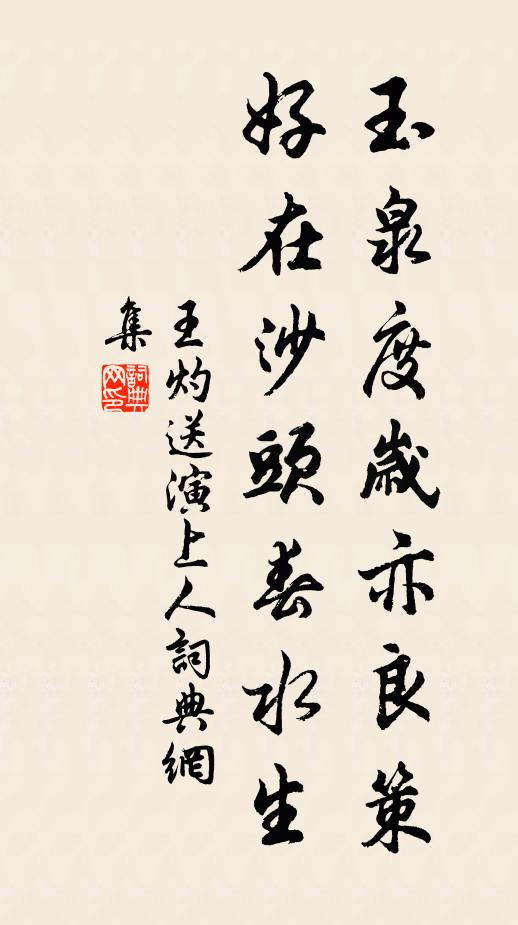 玉泉度歲亦良策
好在沙頭春水生
王灼送演上人詞典網
集
詞典网印